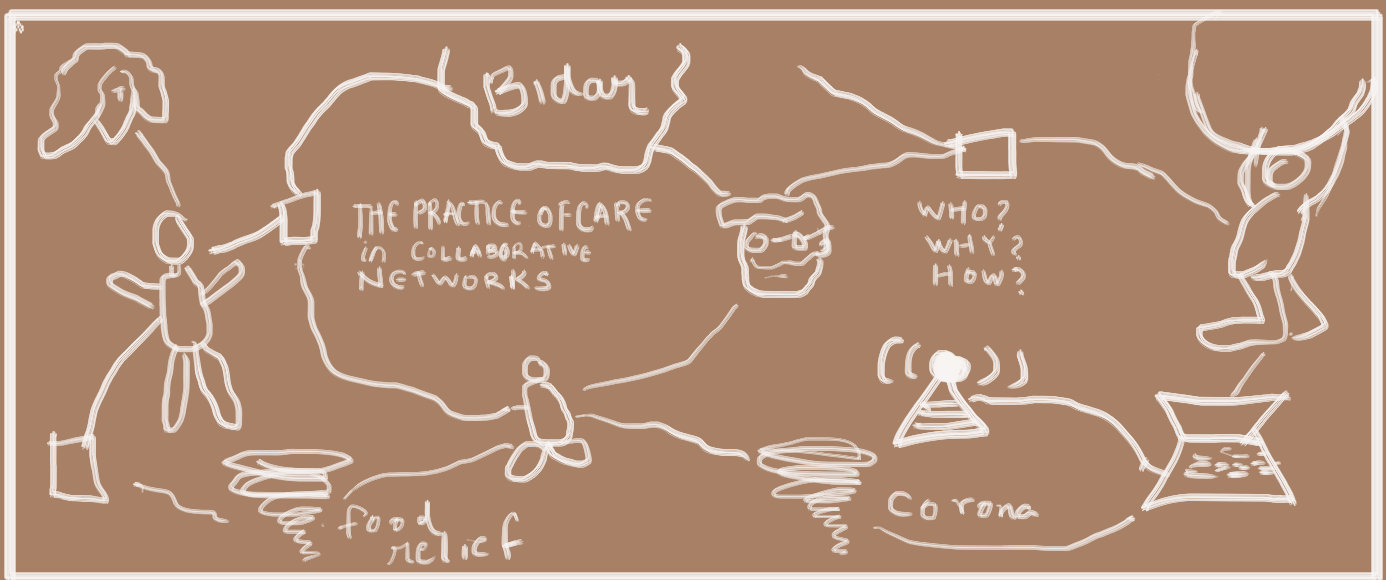 Bidar
THE PRACTICE OF CARE
in COLLABORATIVE
NETWORKS
WHO?
WHY?
HOW?
Corona
food
relief